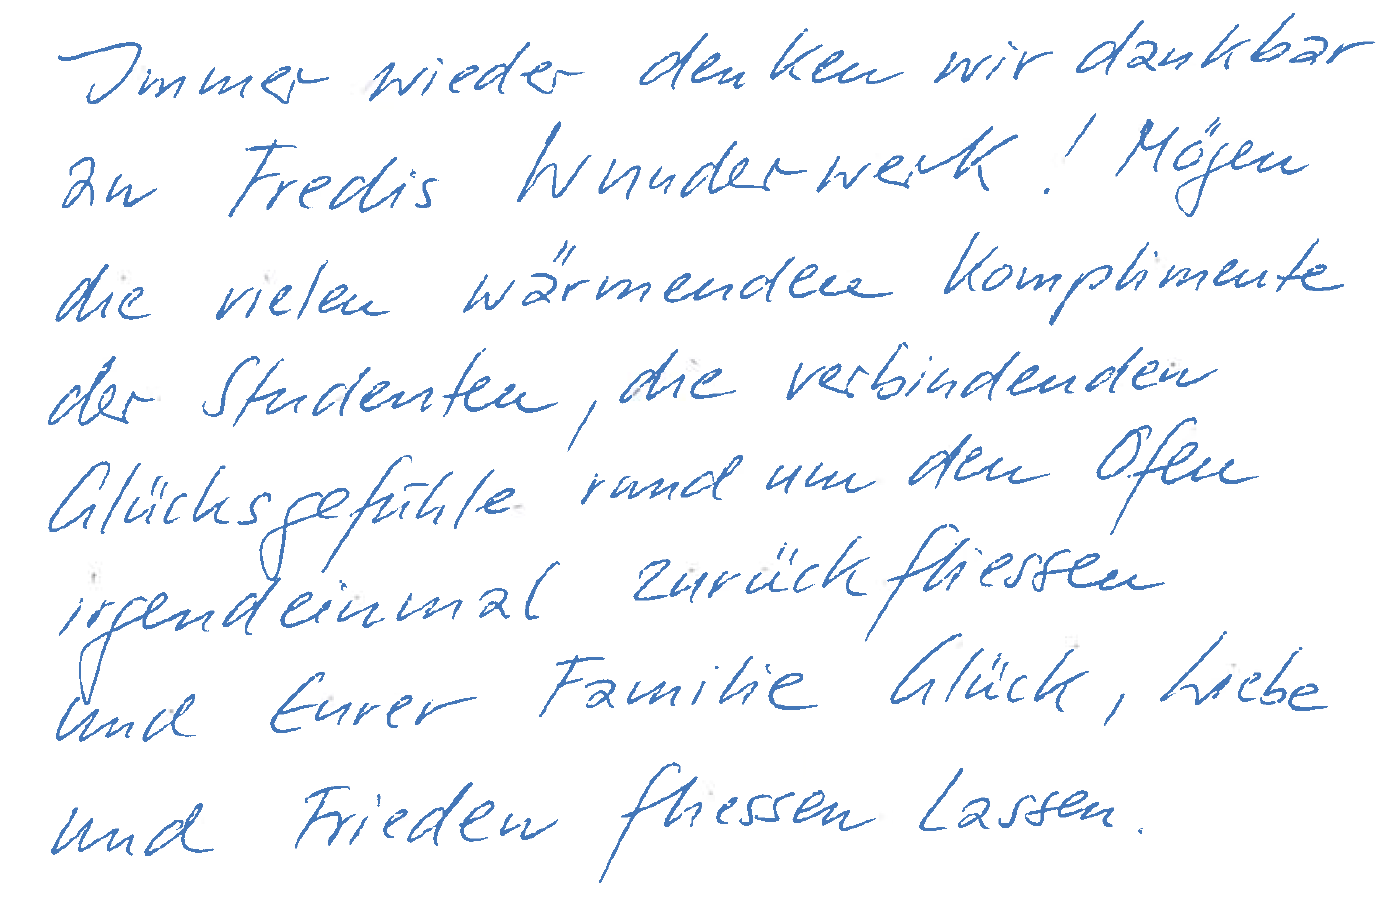 Immer wieder denken wir dankbar
an Fredis Wunderwerk! Mögen
die vielen wärmenden Komplimente
der Studenten, die verbindenden
Glücksgefühle rund um den Ofen
irgendeinmal zurückfliessen
und Eurer Familie Glück, Liebe
und Frieden fliessen lassen.